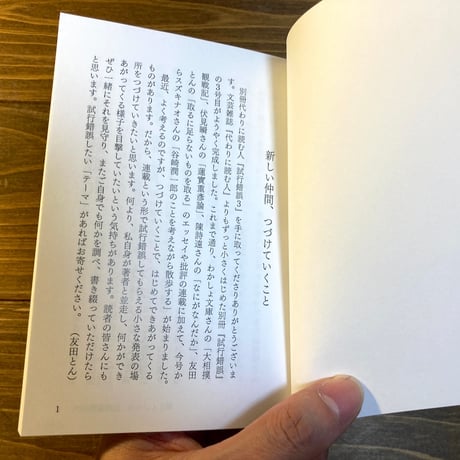 新しい仲間、つづけていくこと
別冊代わりに読む人『試行錯誤3』を手に取ってくださりありがとうございま
す。文芸雑誌『代わりに読む人』よりもずっと小さくはじめた別冊『試行錯誤』
の3号目がようやく完成しました。これまで通り、わかしょ文庫さんの「大相撲
観戦記」、伏見瞬さんの「蓮實重彦論」、陳詩遠さんの「なにがなんだか」、友田
とんの「取るに足らないものを取る」のエッセイや批評の連載に加えて、今号か
らスズキナオさんの「谷崎潤一郎のことを考えながら散歩する」が始まりました。
最近、よく考えるのですが、つづけていくことで、はじめてできあがってくる
ものがあります。だから、連載という形で試行錯誤してもらえる小さな発表の場
所をつづけていきたいと思います。何より、私自身が著者と並走し、何かができ
あがってくる様子を目撃していたいという気持ちがあります。読者の皆さんにも
ぜひ一緒にそれを見守り、またご自身でも何かを調べ、書き綴っていただけたら
と思います。試行錯誤したい「テーマ」があればお寄せください。（友田とん）
1